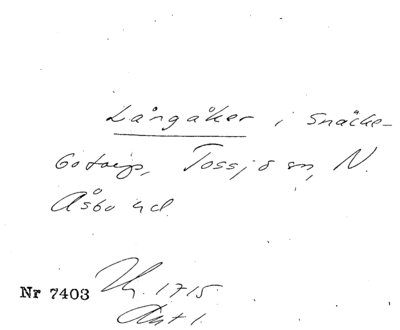 Långåker i Snäcke-
botorp, Tossjö sn, N.
Åsbo hd.
Nr 7403
1715
Akt 1.